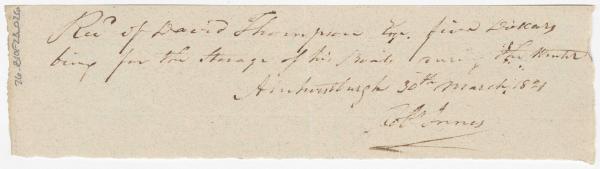 Recd of David Thompson Esqr. five Dollars
being for the Storage of his Boats during the Winter
Amherstburgh 30th March 1821
Robt Innes